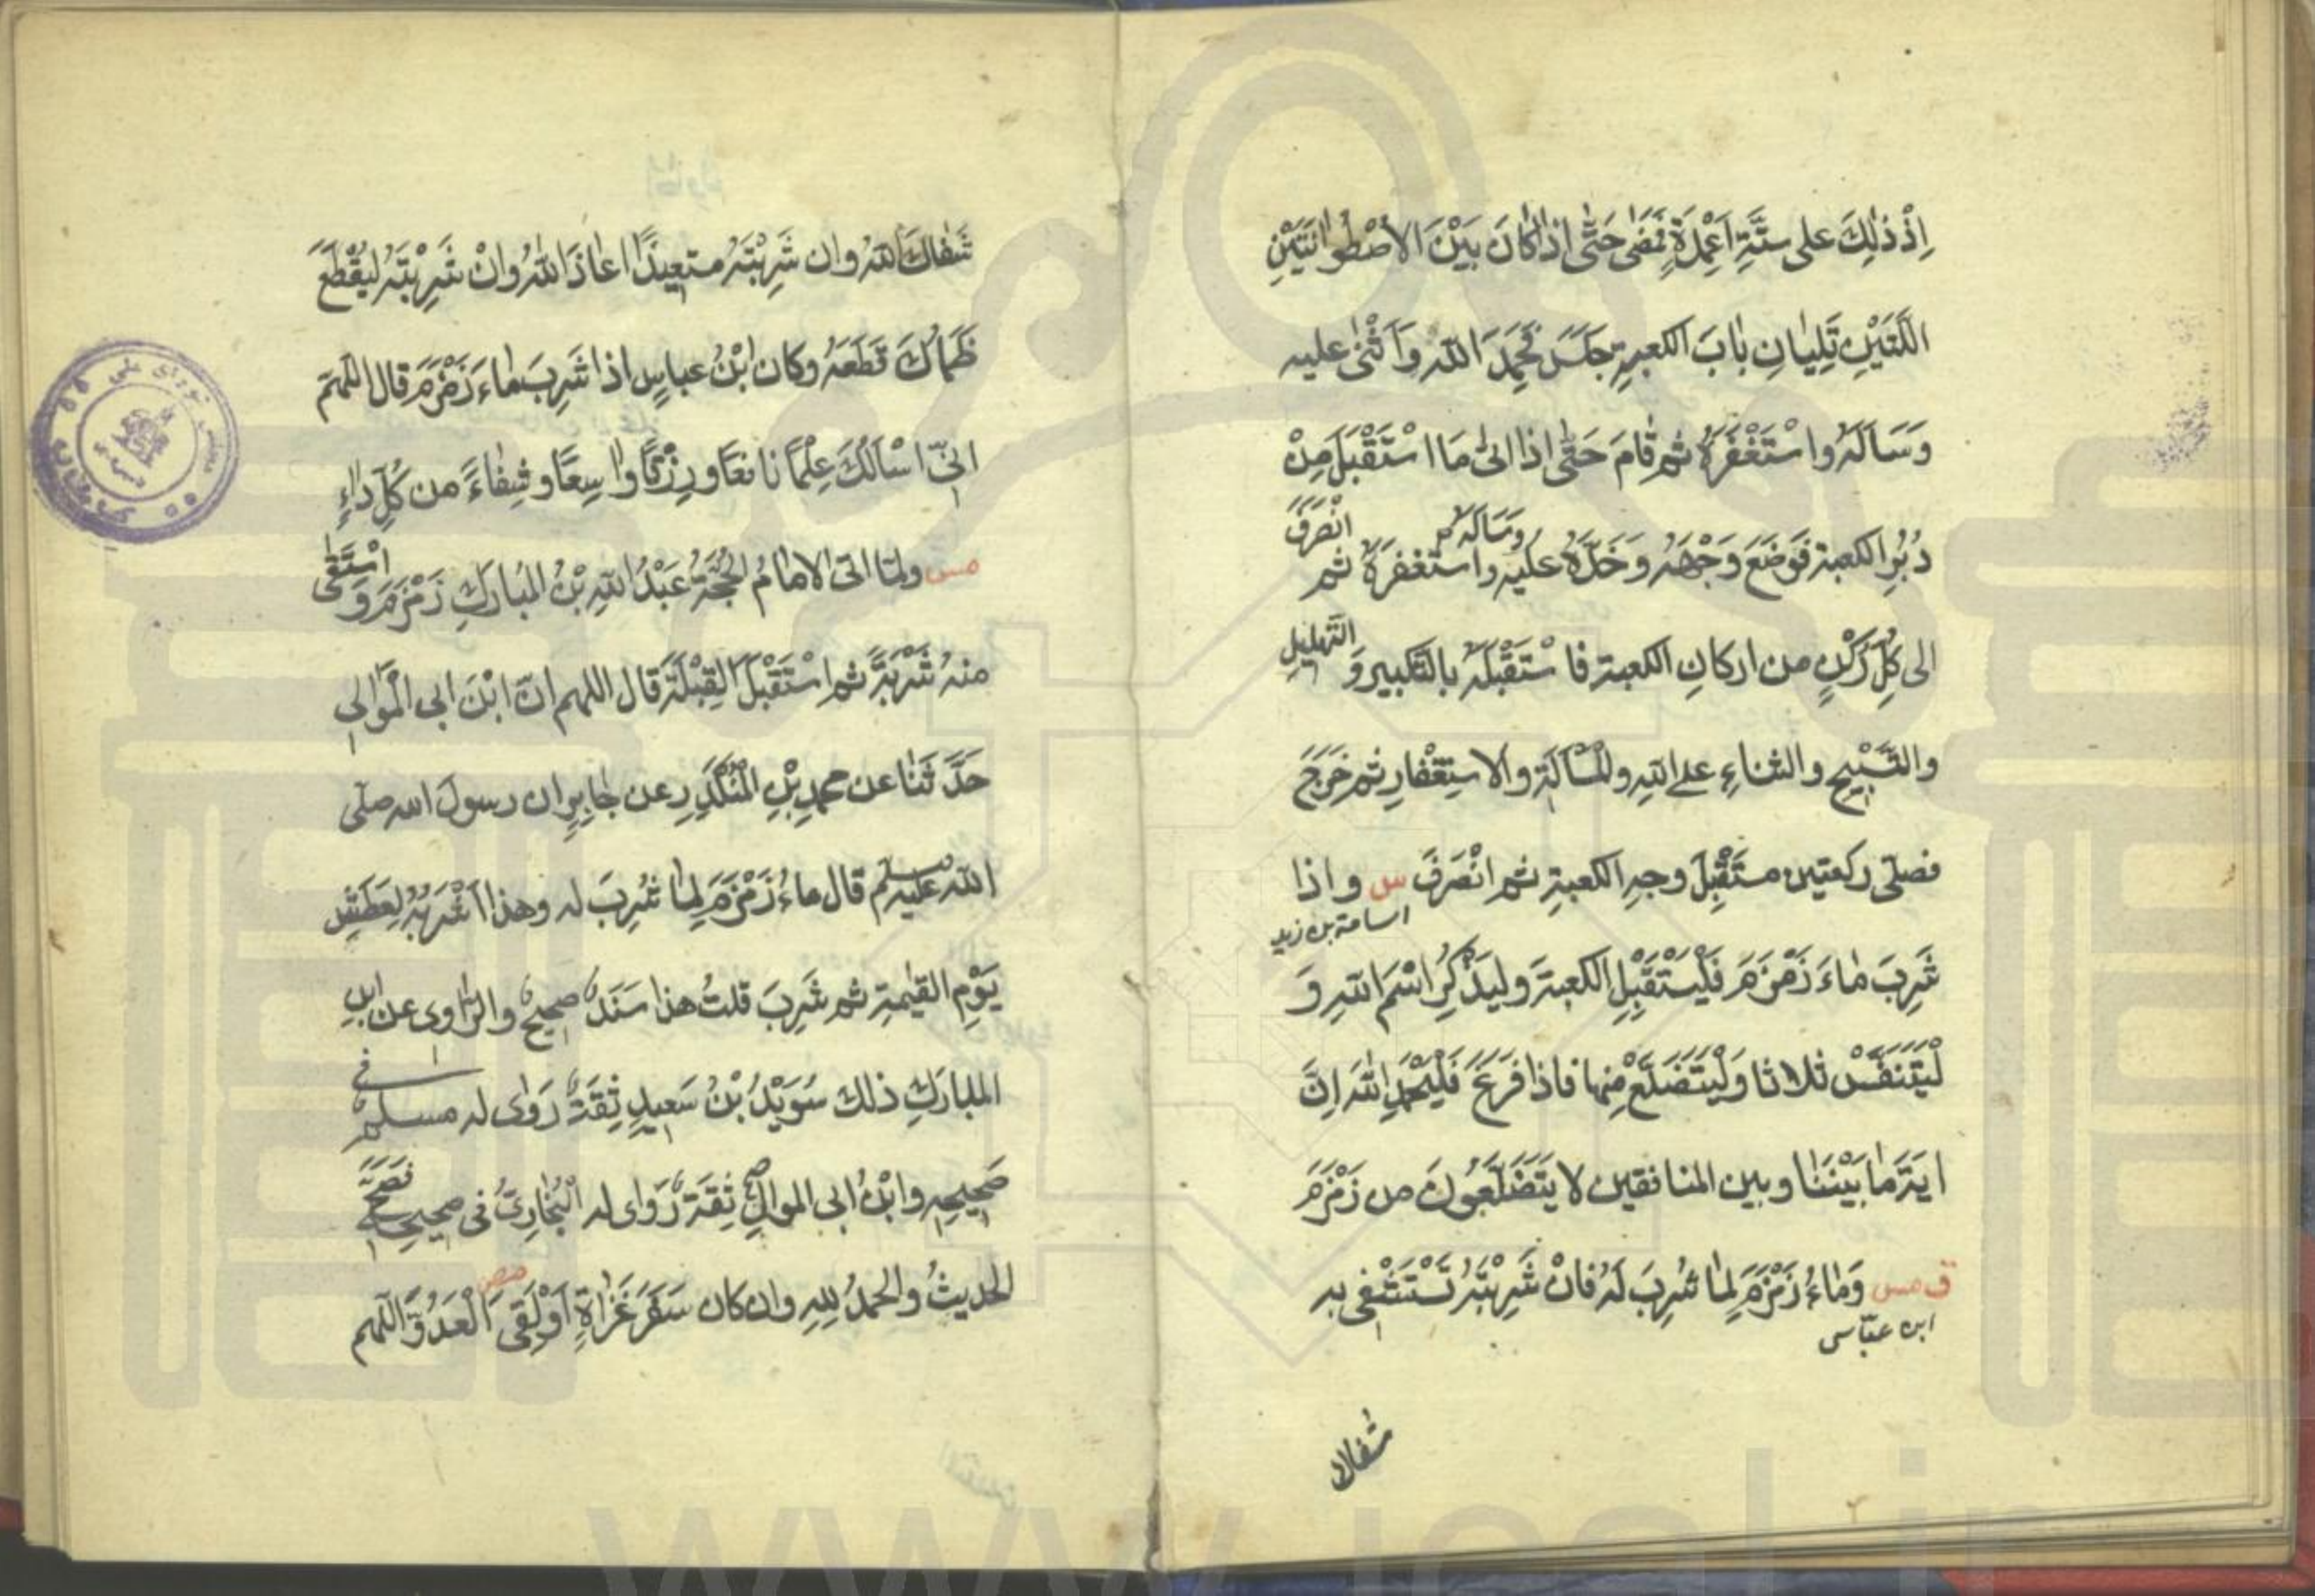 اِذْ ذٰلِكَ على ستَّةِ اَعْمِدَةٍ فَمَضٰى حَتّٰى اِذا كانَ بَيْنَ الاُصْطُوانَتَيْنِ
اللَّتَيْنِ تَلِيَانِ بابَ الكعبةِ جَلَسَ فَحَمِدَ اللّٰه وَاَثْنٰى عليه
وَسَاَلَهُ واسْتَغْفَرَهُ ثم قامَ حَتّٰى اذا اَتٰى مَا اسْتَقْبَلَ مِنْ
دُبُرِ الكعبة فَوَضَعَ وَجْهَهُ وَخَدَّهُ عَلَيْهِ واستغفرَهُ وَسَاَلَهُ ثم انْصَرَفَ
الى كُلِّ رُكْنٍ من اركانِ الكعبة فاسْتَقْبَلَهُ بالتكبير وَالتَّهْلِيلِ
والتَّسْبِيحِ والثناءِ على اللّٰهِ والْمَسْاَلَةِ والاسْتِغْفارِ ثم خَرَجَ
فصلّى ركعتين مستَقْبِلَ وجهِ الكعبةِ ثم انْصَرَفَ س واذا
اسامة بن زيد
شَرِبَ ماءَ زَمْزَمَ فَلْيَسْتَقْبِلِ الكعبةَ وليَذْكُرِ اسْمَ اللّٰهِ وَ
لْيَتَنَفَّسْ ثلاثا وَلْيَتَضَلَّعْ مِنها فاذا فَرَغَ فَلْيَحْمَدِ اللّٰهَ اِنَّ
ايَةَ ما بَيْنَنَا وبين المنافقين لا يَتَضَلَّعُونَ من زَمْزَمَ
ق مس وَماءُ زَمْزَمَ لِمَا شُرِبَ لَهُ فانْ شَرِبْتَهُ تَسْتَشْفِى به
ابن عبّاس
شفاك
شَفَاكَ اللّٰهُ وان شَرِبْتَهُ مستعِيذًا اعاذَكَ اللّٰهُ وانْ شَرِبْتَهُ لِيَقْطَعَ
ظَمَاَكَ قَطَعَهُ وكان ابْنُ عباسٍ اذا شَرِبَ ماءَ زَمْزَمَ قال اللّٰهم
اِنِّى اَسْاَلُكَ عِلْمًا نافعًا ورِزْقًا واسِعًا وشِفاءً من كُلِّ داءٍ
مس ولمّا اتى الامامُ الحُجَّةُ عَبْدُ اللّٰهِ بْنُ المُبارَكِ زَمْزَمَ وَاسْتَقٰى
منهُ شَرْبَةً ثم اسْتَقْبَلَ القِبْلَةَ قال اللهم انّ ابْنَ ابى الْمَوَالِى
حَدَّثَنَا عن محمدِ بْنِ الْمُنْكَدِرِ عن جابِرٍ ان رسولَ الله صلّى
اللّٰه عليه وسلم قال ماءُ زَمْزَمَ لِمَا شُرِبَ له وهذا اَشْرَبُهُ لِعَطَشِ
يَوْمِ القيٰمةِ ثم شَرِبَ قلتُ هذا سَنَدٌ صحيحٌ والرّاوى عن ابن
المبارَكِ ذلك سُوَيْدُ بْنُ سَعِيدٍ ثِقَةٌ رَوٰى له مسلمٌ فى
صَحِيحِهِ وابْنُ ابى الموالِ ثِقَةٌ رَوٰى له الْبُخارِىُّ فى صحيحِهِ فَصَحَّ
الحديثُ والحمدُ للهِ وان كان سَفَرَ غَزَاةٍ اَوْ لَقِىَ الْعَدُوَّ اللّٰهم
مص